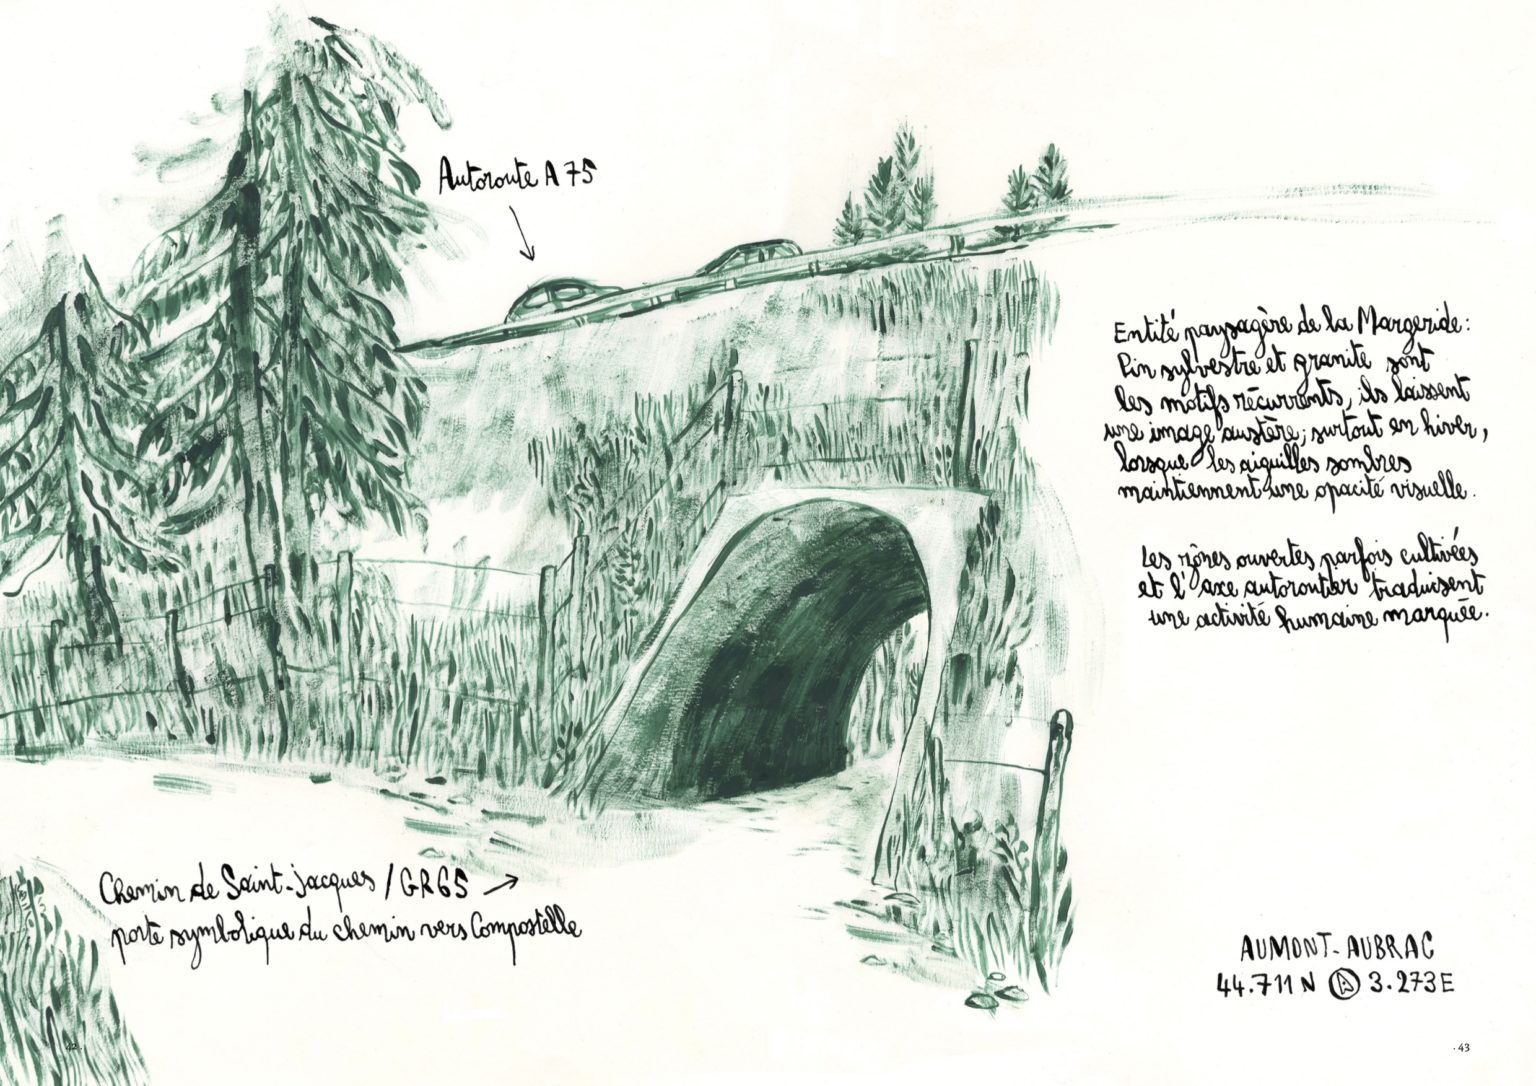 Autoroute A75
Entité paysagère de la Margeride :
Pin sylvestre et granite sont
les motifs récurrents, ils laissent
une image austère, surtout en hiver,
lorsque les aiguilles sombres
maintiennent une opacité visuelle.
Les zônes ouvertes parfois cultivées
et l'axe autoroutier traduisent
une activité humaine marquée.
Chemin de Saint-Jacques / GR65
porte symbolique du chemin vers Compostelle
AUMONT-AUBRAC
44.711 N A 3.273 E
42.
.43